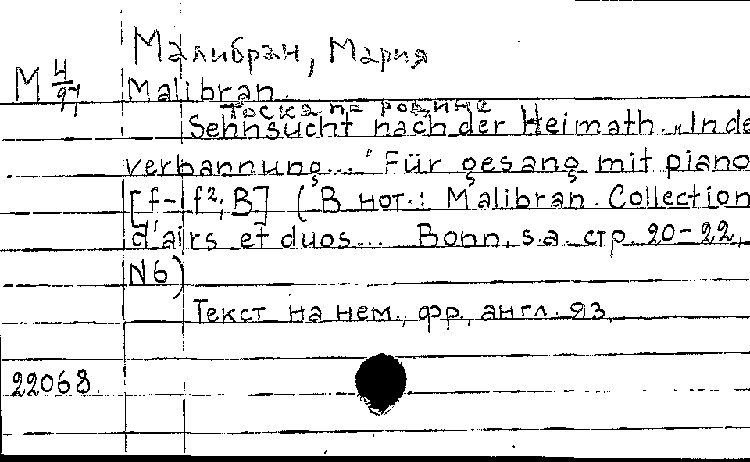 Малибран, Мария
М 4/97 Malibran.
Тоска по родине
Sehnsucht nach der Heimath. „In de
verbannung..." Für gesang mit piano
[f-f²; B] (В нот.: Malibran. Collection
d'airs et duos... Bonn, s.a. стр. 20-22,
N6)
Текст на нем., фр., англ. яз.
22068.